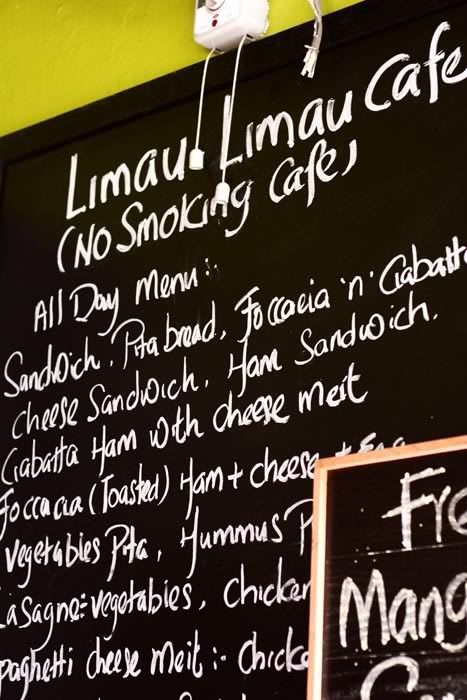 Limau. Limau Cafe
(No Smoking Cafe)
All Day Menu:
Sandwich. Pita bread, Foccacia 'n' Ciabatta
cheese Sandwich. Ham Sandwich.
Ciabatta Ham with cheese melt
Foccacia (Toasted) Ham + cheese + Egg
Vegetables Pita, Hummus P
Lasagne: vegetables, chicken
spaghetti cheese melt :- chicke
Fre
Mang